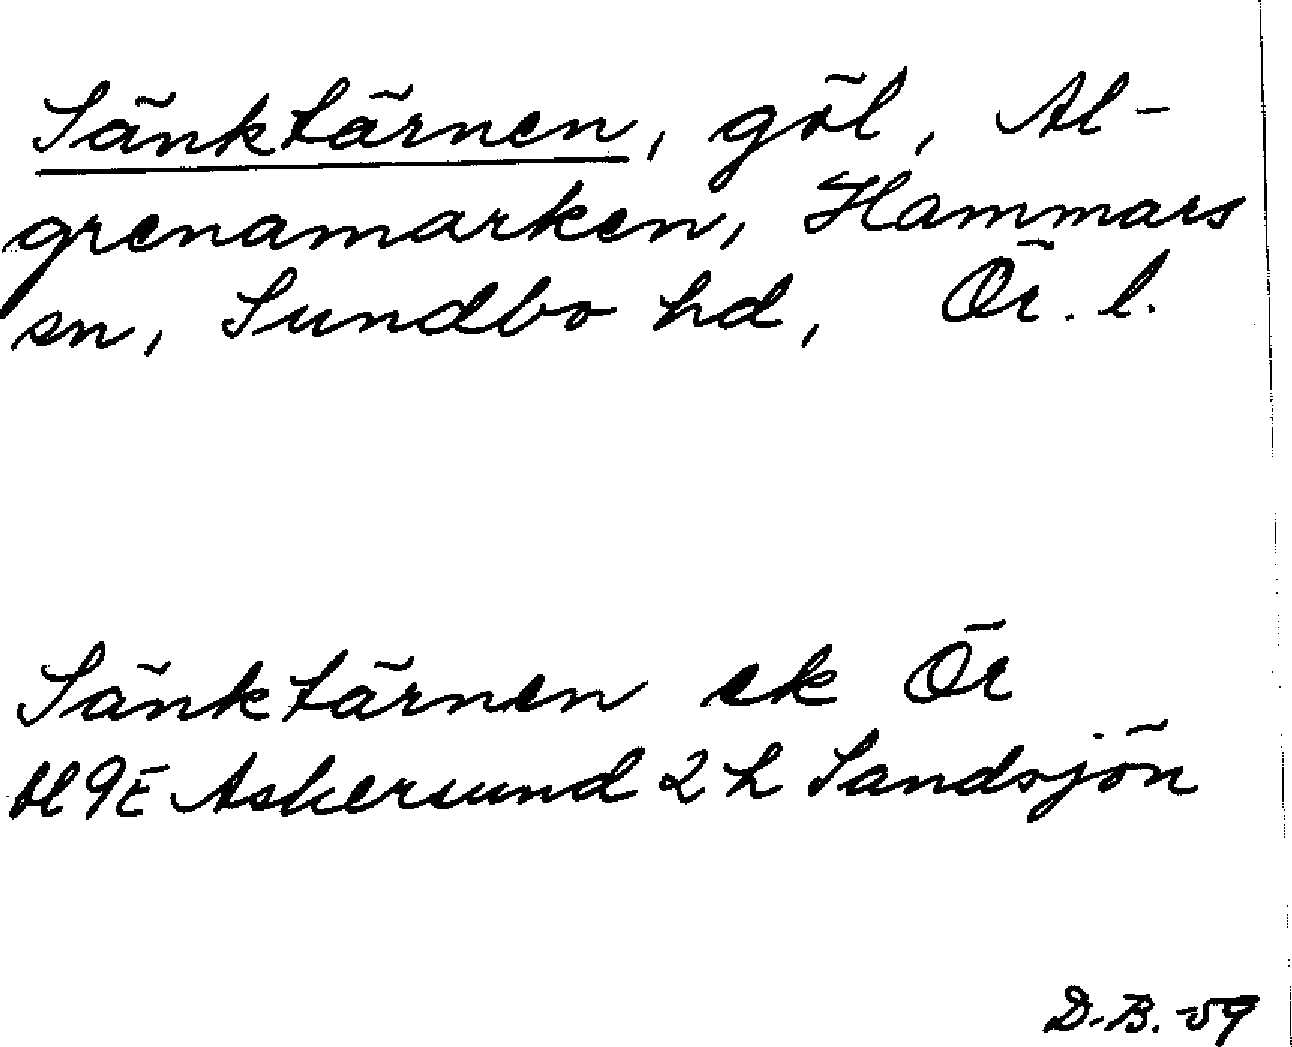 Sänktärnen, göl, Al-
grenamarken, Hammars
sn, Sundbo hd, Ör. l.
Sänktärnen ek Ör
M9E Askersund 2h Sandsjön
D.B. -59